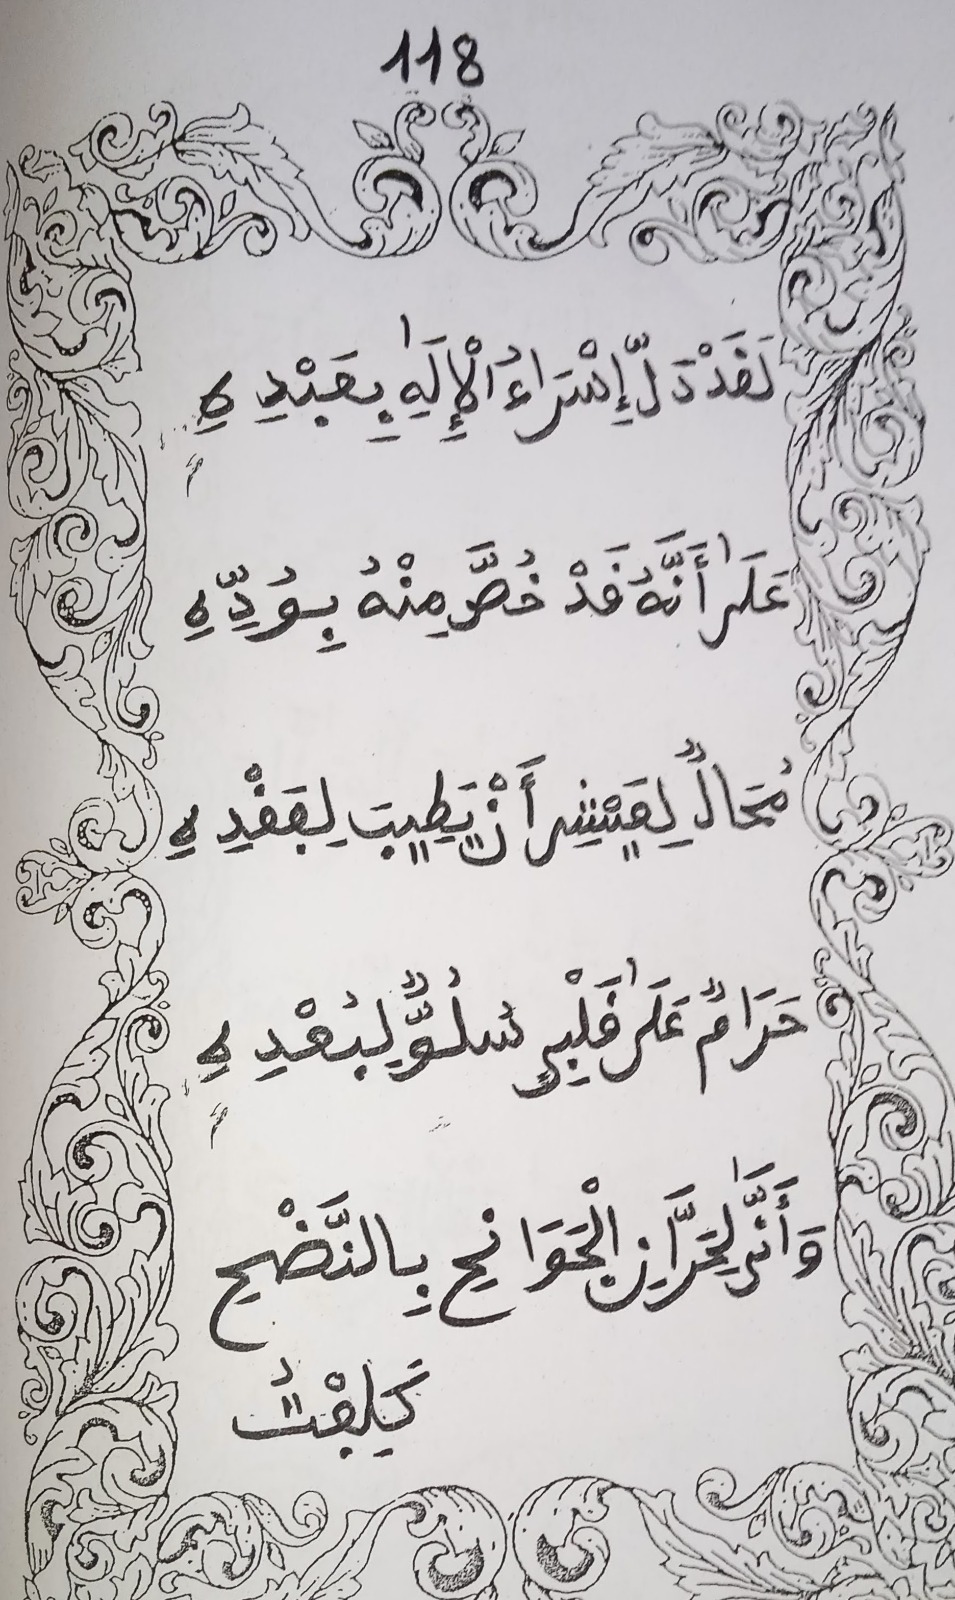 118
لَقَدْ دَلَّ إِسْرَاءُ الْإِلَٰهِ بِعَبْدِهِ
عَلَىٰ أَنَّهُ قَدْ خُصَّ مِنْهُ بِوُدِّهِ
مُحَالٌ لِعَيْشِي أَنْ يَطِيبَ لِفَقْدِهِ
حَرَامٌ عَلَىٰ قَلْبِي سُلُوٌّ لِبُعْدِهِ
وَأَنَّىٰ لِحَرَّانِ الْجَوَانِحِ بِالنَّضْحِ
كَلِفْتُ